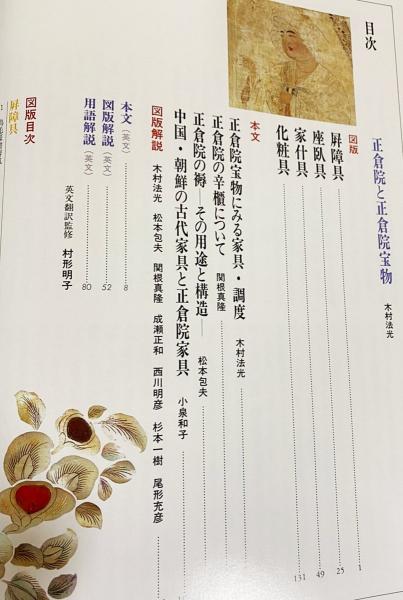 目次
正倉院と正倉院宝物 木村法光
図版
屛障具 1
座臥具 25
家什具 49
化粧具 131
本文
正倉院宝物にみる家具・調度 木村法光
正倉院の辛櫃について 関根真隆
正倉院の褥―その用途と構造― 松本包夫
中国・朝鮮の古代家具と正倉院家具 小泉和子
図版解説 木村法光 松本包夫 関根真隆 成瀬正和 西川明彦 杉本一樹 尾形充彦
本文(英文) 8
図版解説(英文) 52
用語解説(英文) 80
英文翻訳監修 村形明子
図版目次
屛障具